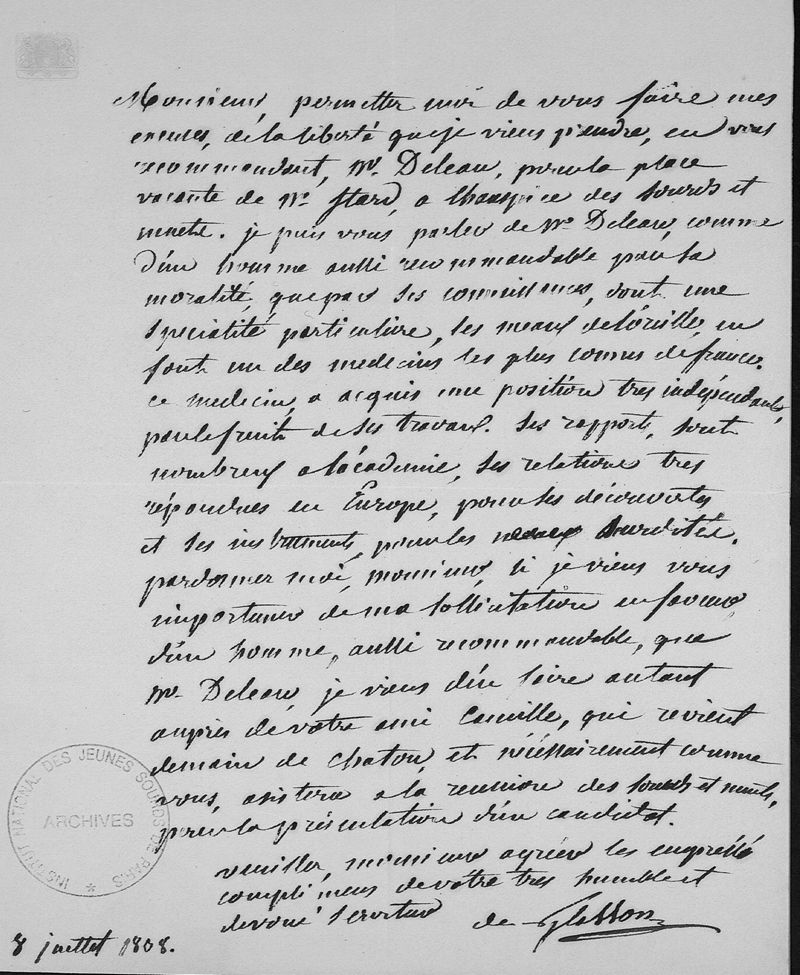 Monsieur, permetter moi de vous faire mes
excuses, de la liberté que je viens prendre, en vous
recommandant, Mr. Deleau, pour la place
vacante de Mr. Itard, a lhauspice des sourds et
muets. je puis vous parler de Mr Deleau, comme
d'un homme aussi recommandable par sa
moralité, que par ses connissances, dont une
specialité particuliere, les maux de l'oreille, en
font un des medecins les plus connus de france.
ce medecin, a acquis une position tres indépendante,
par le fruit de ses travaux. Ses rapports, sont
nombreux a lacademie, ses relations tres
répandues en Europe, pour ses découvertes
et ses instruments, pour les surdités.
pardonner moi, monsieur, si je viens vous
importuner de ma sollicitation en faveur
d'un homme, aussi recommandable, que
Mr. Deleau, je viens d'en faire autant
auprès de votre ami Camille, qui revient
demain de chatou, et nécessairement comme
vous, asistera a la reunion des sourds et muets,
pour la présentation d'un candidat.
veuiller, monsieur agréer les empressés
complimens de votre tres humble et
devoué serviteur de Glasson
8 juillet 1838.
INSTITUT NATIONAL DES JEUNES SOURDS DE PARIS
ARCHIVES